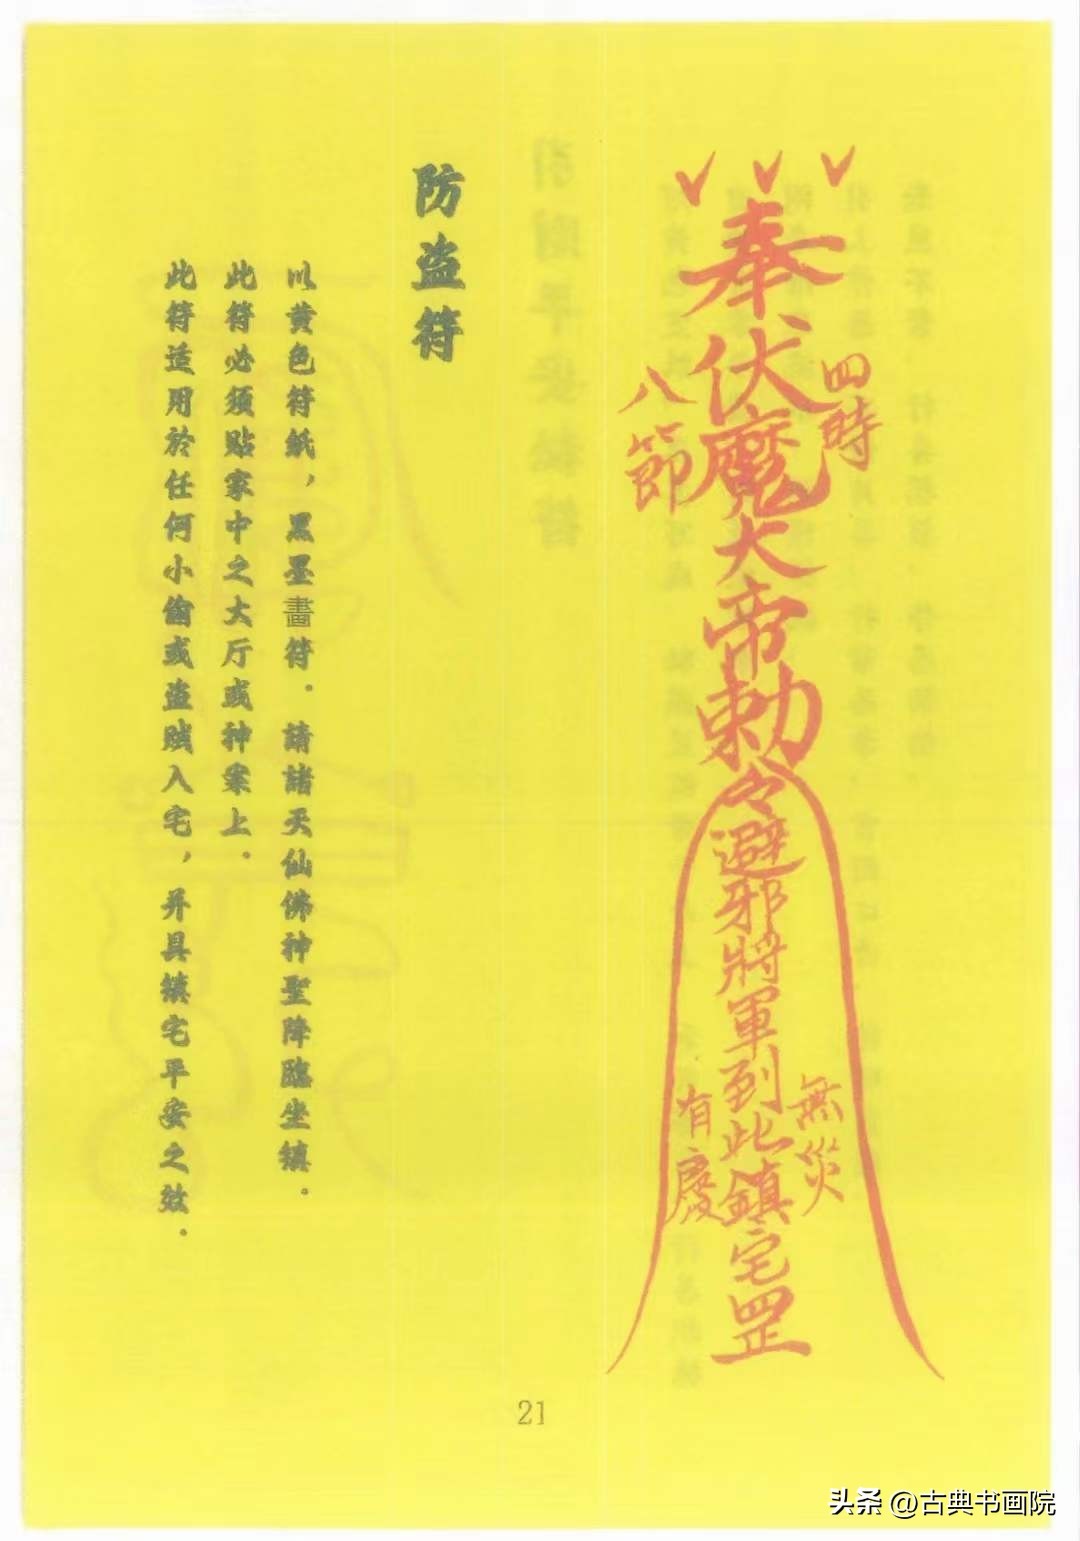 奉伏魔大帝勅令避邪將軍到此鎮宅罡
四時
八節
無災
有慶
防盗符
以黄色符紙，黑墨畵符．請諸天仙佛神聖降臨坐镇．
此符必须贴家中之大厅或神案上．
此符适用於任何小偷或盗贼入宅，并具镇宅平安之效．
21
头条 @古典书画院